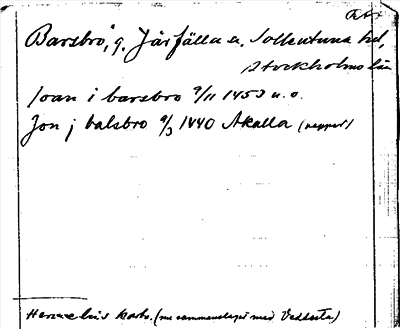 Barsbro, g. Järfälla sn, Sollentuna hd,
Stockholms län
Joan i barsbro 9/11 1453 u.o.
Jon j balsbro 9/3 1440 Akalla (pappert)
Hermelins karta. (nu sammanslaget med Vedlesta)